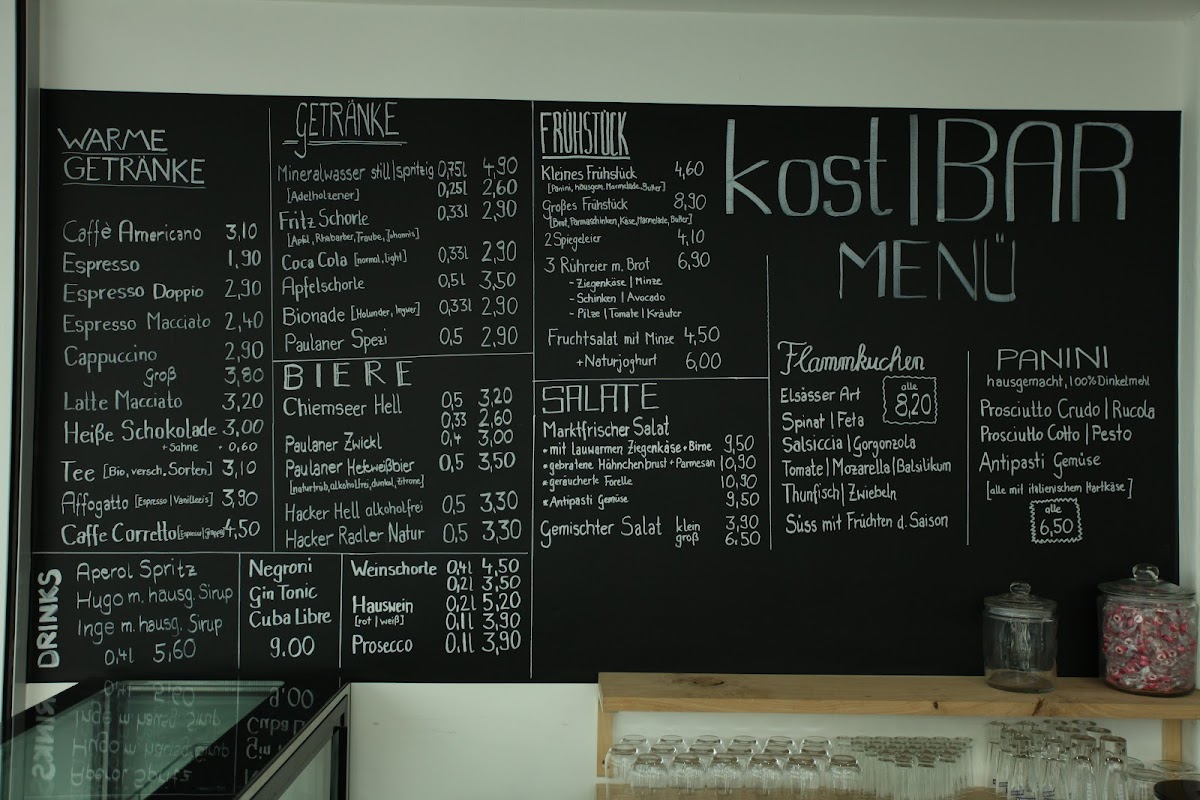 WARME
GETRÄNKE
Caffè Americano 3,10
Espresso 1,90
Espresso Doppio 2,90
Espresso Macciato 2,40
Cappuccino 2,90
Groß 3,80
Latte Macciato 3,20
Heiße Schokolade 3,00
+ Sahne + 0,60
Tee [Bio, versch. Sorten] 3,10
Affogatto [Espresso | Vanilleeis] 3,90
Caffe Corretto [Espresso | Grappa] 4,50
GETRÄNKE
Mineralwasser still | spritzig 0,75l 4,90
[Adelholzener] 0,25l 2,60
Fritz Schorle 0,33l 2,90
[Apfel, Rhabarber, Traube, Johannis]
Coca Cola [normal, light] 0,33l 2,90
Apfelschorle 0,5l 3,50
Bionade [Holunder, Ingwer] 0,33l 2,90
Paulaner Spezi 0,5 2,90
BIERE
Chiemseer Hell 0,5 3,20
0,33 2,60
Paulaner Zwickl 0,4 3,00
Paulaner Hefeweißbier 0,5 3,50
[naturtrüb, alkoholfrei, dunkel, Zitrone]
Hacker Hell alkoholfrei 0,5 3,30
Hacker Radler Natur 0,5 3,30
FRÜHSTÜCK
Kleines Frühstück 4,60
[Panini, hausgem. Marmelade, Butter]
Großes Frühstück 8,90
[Brot, Parmaschinken, Käse, Marmelade, Butter]
2 Spiegeleier 4,10
3 Rühreier m. Brot 6,90
- Ziegenkäse | Minze
- Schinken | Avocado
- Pilze | Tomate | Kräuter
Fruchtsalat mit Minze 4,50
+ Naturjoghurt 6,00
SALATE
Marktfrischer Salat
* mit lauwarmen Ziegenkäse + Birne 9,50
* gebratene Hähnchenbrust + Parmesan 10,90
* geräucherte Forelle 10,90
* Antipasti Gemüse 9,50
Gemischter Salat klein 3,90
groß 6.50
kost|BAR
MENÜ
Flammkuchen
Elsässer Art
alle
8,20
Spinat | Feta
Salsiccia | Gorgonzola
Tomate | Mozarella | Balsilikum
Thunfisch | Zwiebeln
Süss mit Früchten d. Saison
PANINI
hausgemacht, 100% Dinkelmehl
Prosciutto Crudo | Rucola
Prosciutto Cotto | Pesto
Antipasti Gemüse
[alle mit italienischem Hartkäse]
alle
6,50
DRINKS
Aperol Spritz
Hugo m. hausg. Sirup
Inge m. hausg. Sirup
0,4l 5,60
Negroni
Gin Tonic
Cuba Libre
9.00
Weinschorle 0,4l 4,50
0,2l 3,50
Hauswein 0,2l 5,20
[rot | weiß] 0,1l 3,90
Prosecco 0,1l 3,90